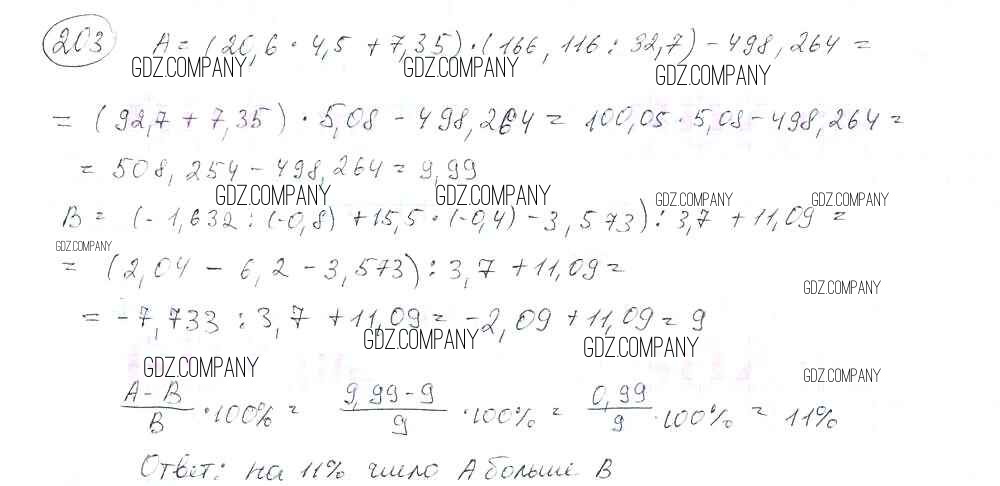 203 A = (20,6 · 4,5 + 7,35) · (166,116 : 32,7) - 498,264 =
GDZ.COMPANY GDZ.COMPANY GDZ.COMPANY
= (92,7 + 7,35) · 5,08 - 498,264 = 100,05 · 5,08 - 498,264 =
= 508,254 - 498,264 = 9,99
GDZ.COMPANY GDZ.COMPANY GDZ.COMPANY GDZ.COMPANY
B = (-1,632 : (-0,8) + 15,5 · (-0,4) - 3,573) : 3,7 + 11,09 =
GDZ.COMPANY
= (2,04 - 6,2 - 3,573) : 3,7 + 11,09 =
GDZ.COMPANY
= -7,733 : 3,7 + 11,09 = -2,09 + 11,09 = 9
GDZ.COMPANY GDZ.COMPANY
GDZ.COMPANY GDZ.COMPANY
A - B / B · 100% = 9,99 - 9 / 9 · 100% = 0,99 / 9 · 100% = 11%
Ответ: на 11% число A больше B